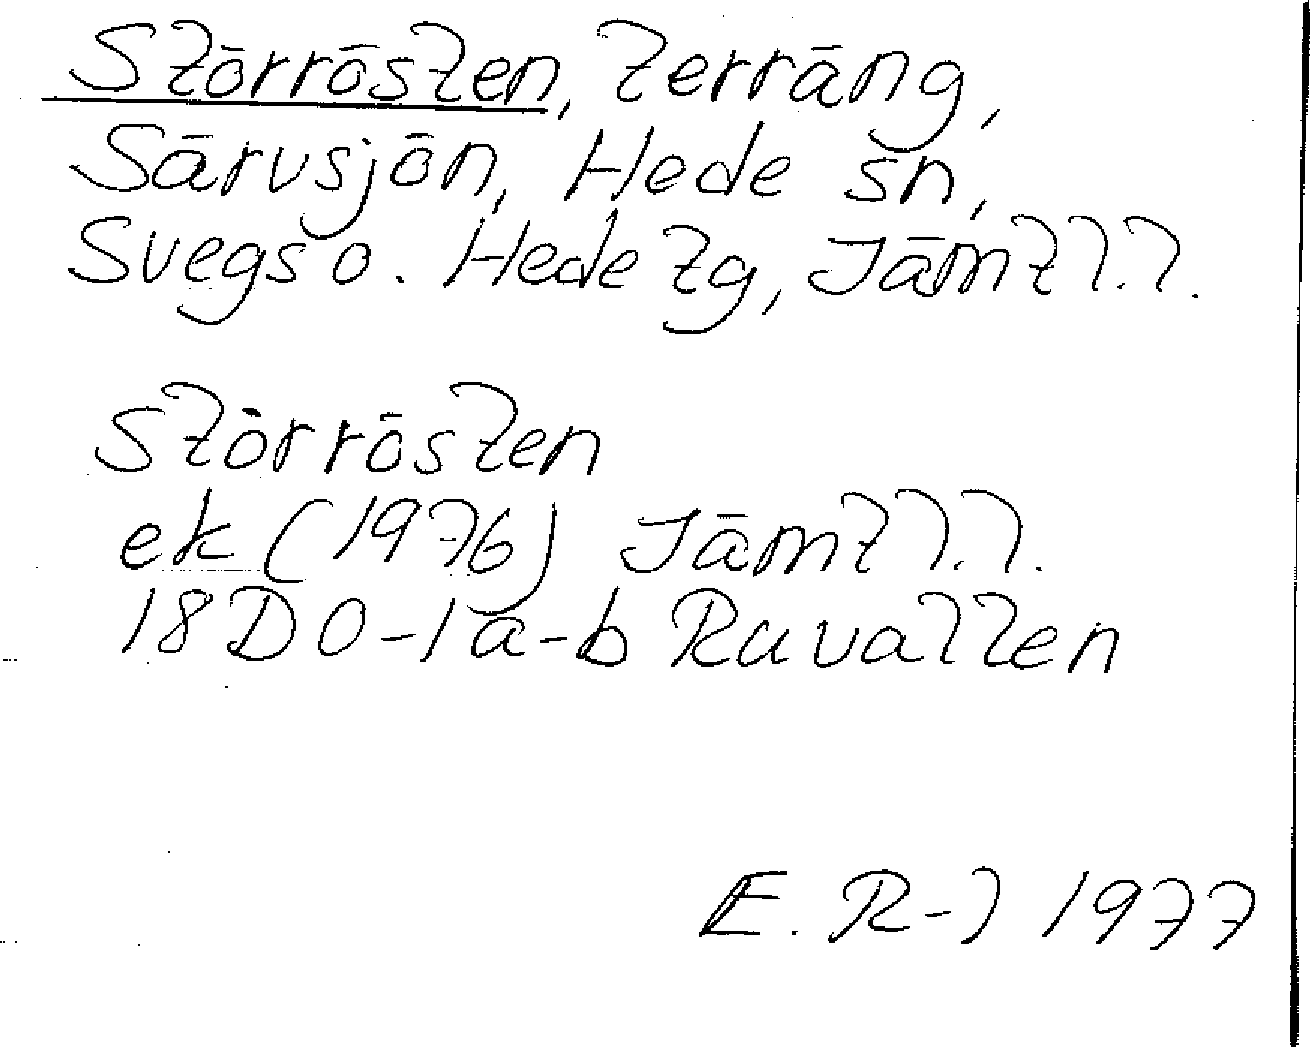 Störrösten, terräng,
Särvsjön, Hede sn,
Svegs o. Hede tg, Jämtl.l.
Störrösten
ek (1976) Jämtl.l.
18D 0-1 a-b Ruvallen
E. R-l 1977